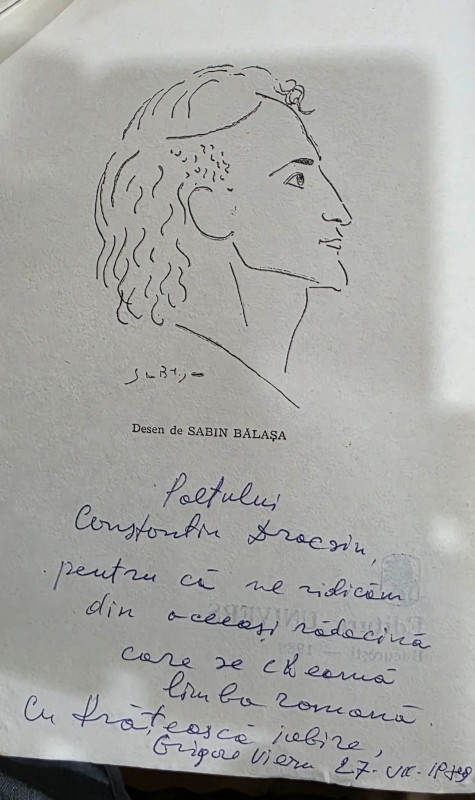 Desen de SABIN BĂLAȘA
Poetului
Constantin Dracsin,
pentru că ne ridicăm
din aceeași rădăcină
care se cheamă
limba română.
Cu frățească iubire,
Grigore Vieru 27.
Editura UNIVERS
București — 198